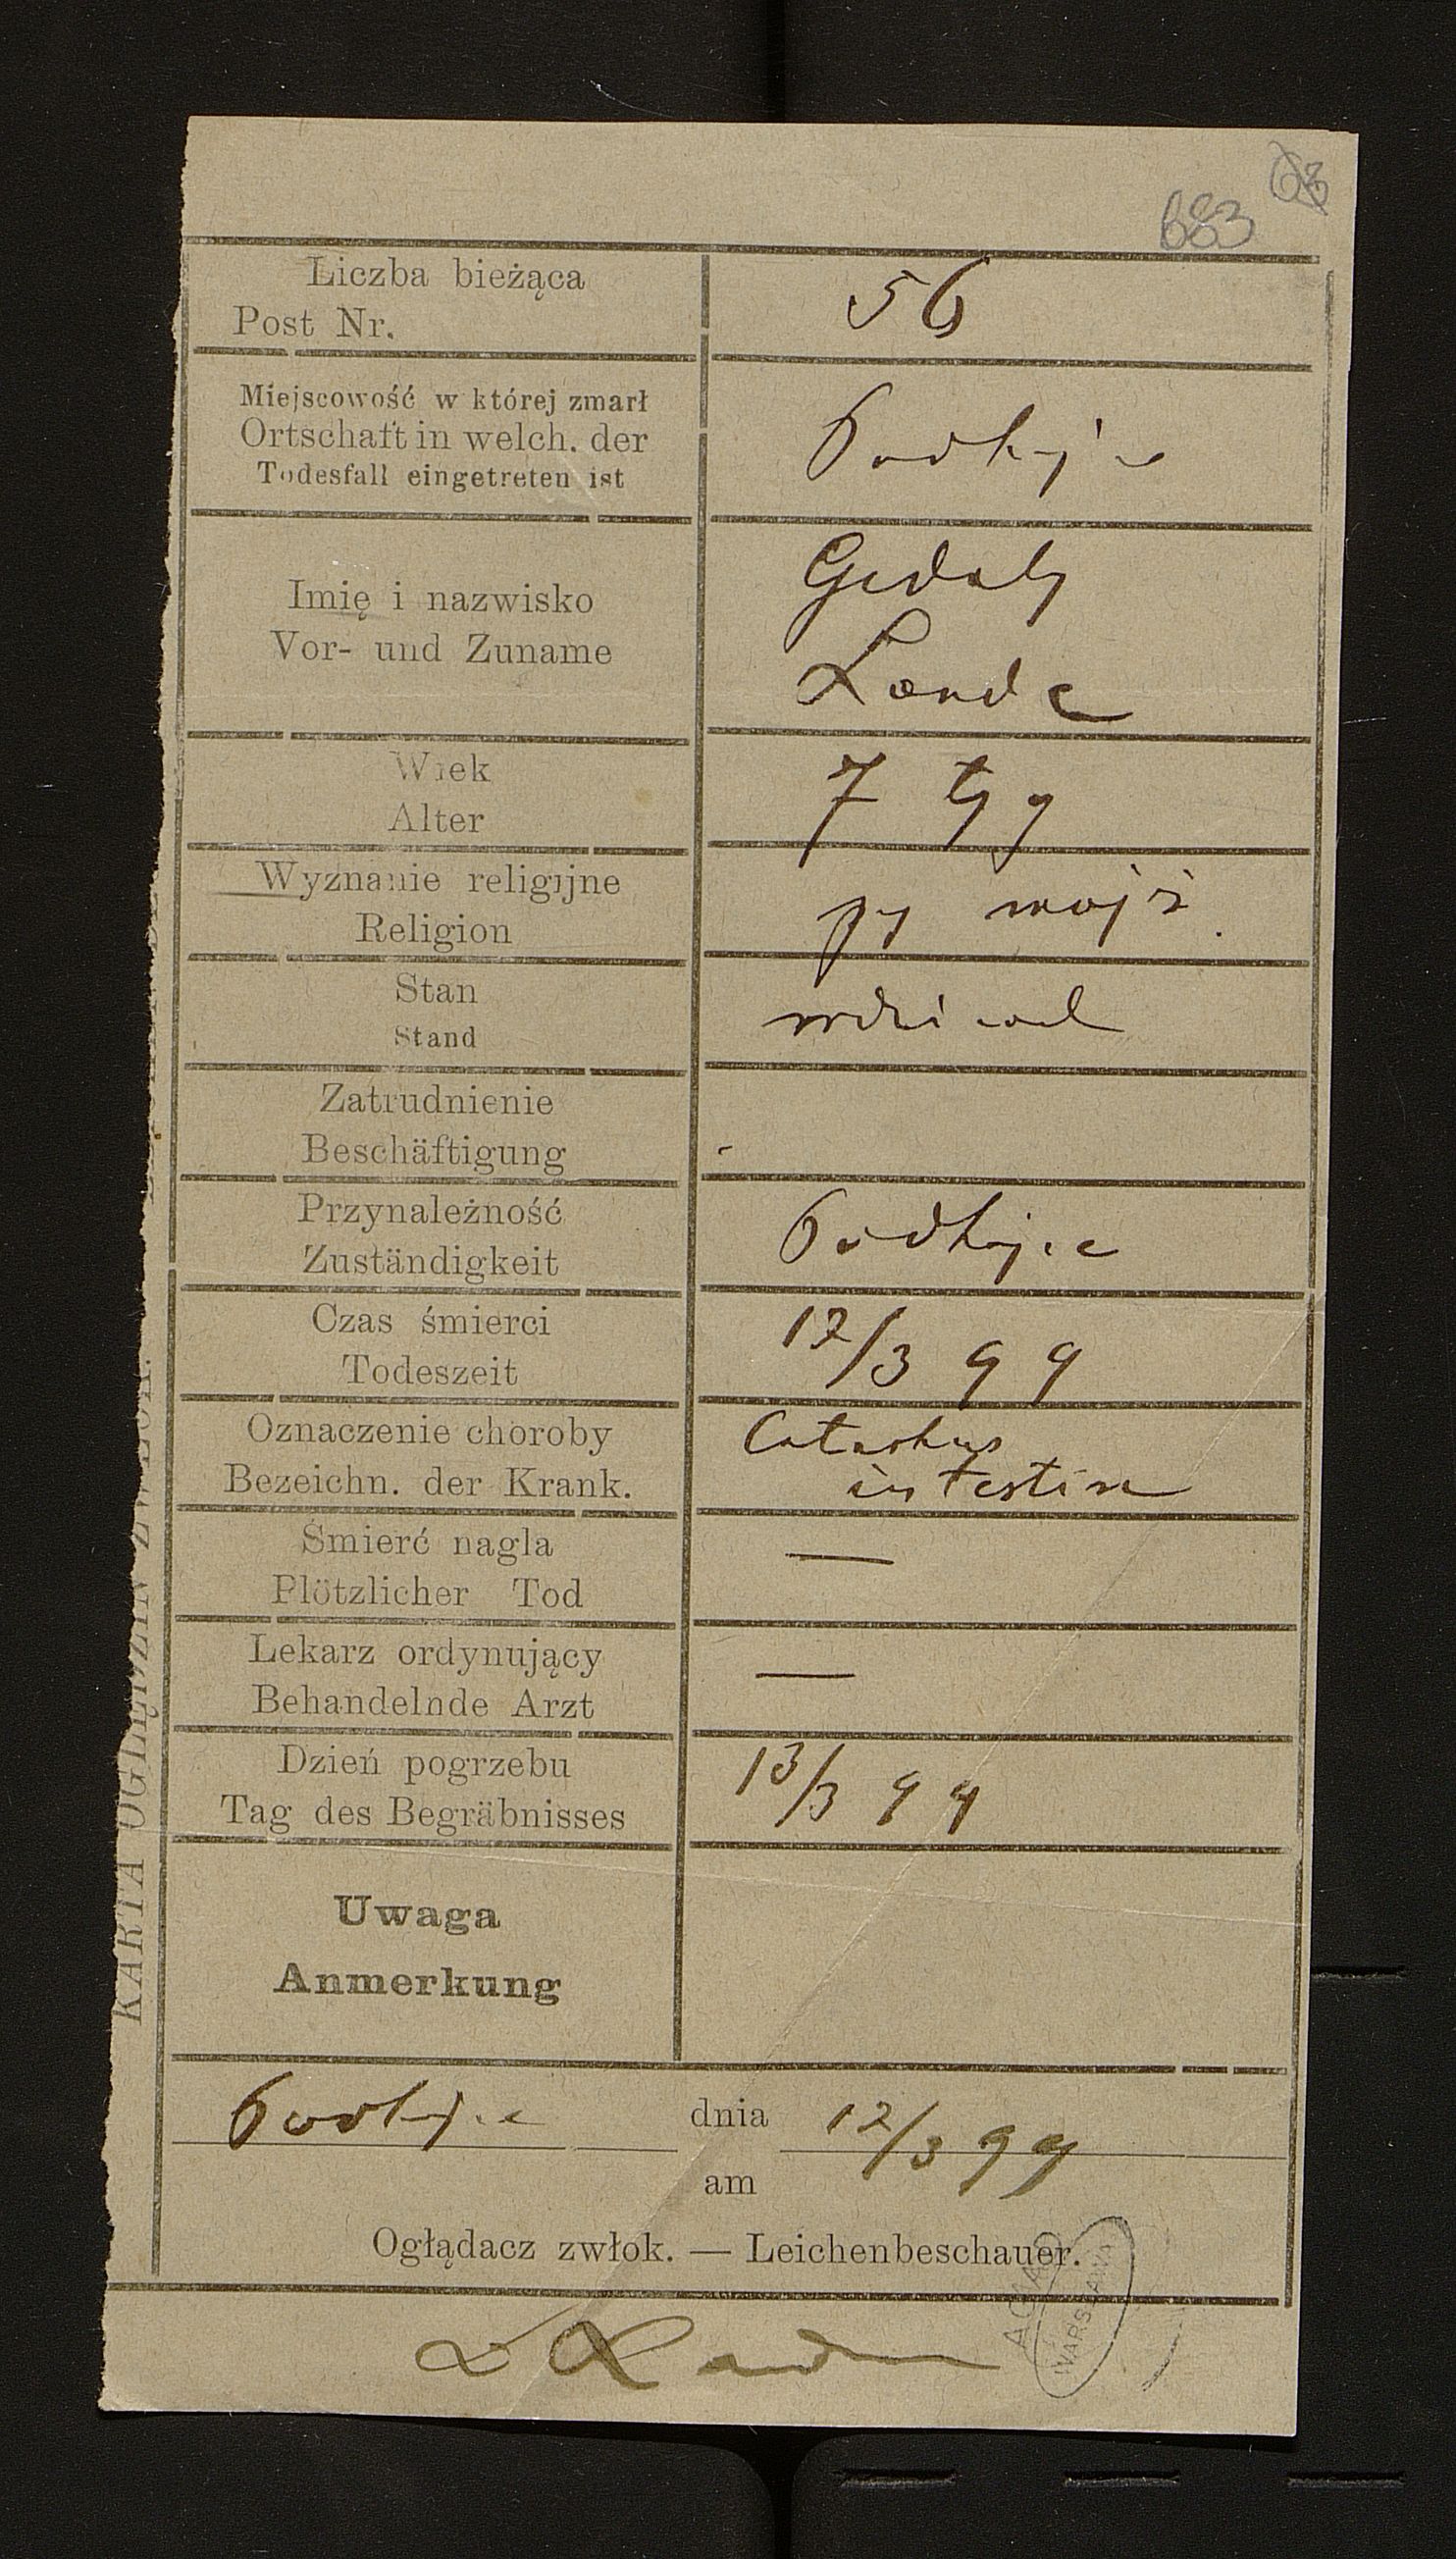 683
Liczba bieżąca
Post Nr.
56
Miejscowość w której zmarł
Ortschaft in welch. der
Todesfall eingetreten ist
Podhajce
Imię i nazwisko
Vor- und Zuname
Gedaly
Lande
Wiek
Alter
7 tyg
Wyznanie religijne
Religion
mojż.
Stan
Stand
Zatrudnienie
Beschäftigung
Przynależność
Zuständigkeit
Podhajce
Czas śmierci
Todeszeit
12/3 99
Oznaczenie choroby
Bezeichn. der Krank.
Catarhus
intestin
Śmierć nagla
Plötzlicher Tod
—
Lekarz ordynujący
Behandelnde Arzt
—
Dzień pogrzebu
Tag des Begräbnisses
13/3 99
Uwaga
Anmerkung
Podhajce dnia 12/3 99
am
Oglądacz zwłok. — Leichenbeschauer.
KARTA OGLĘDZIN ZWŁOK.
AGAD
WARSZAWA